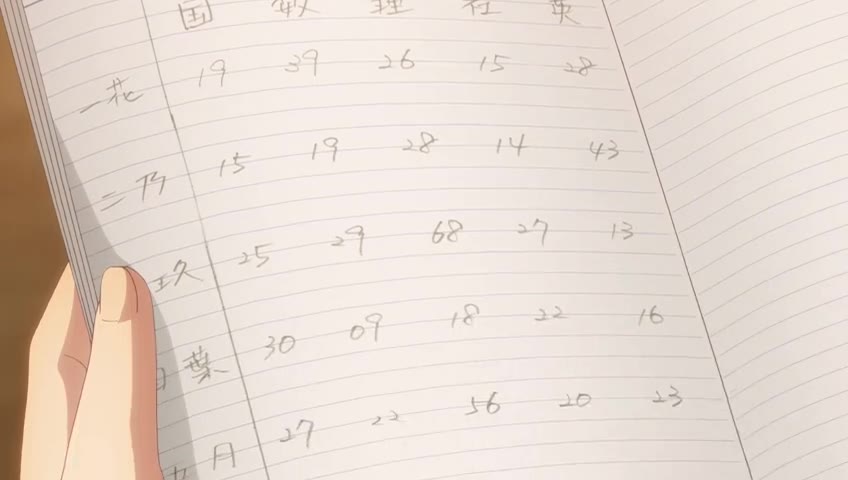 国 数 理 社 英
一花 19 39 26 15 28
二乃 15 19 28 14 43
玖 25 29 68 27 13
葉 30 09 18 22 16
月 27 22 56 20 23